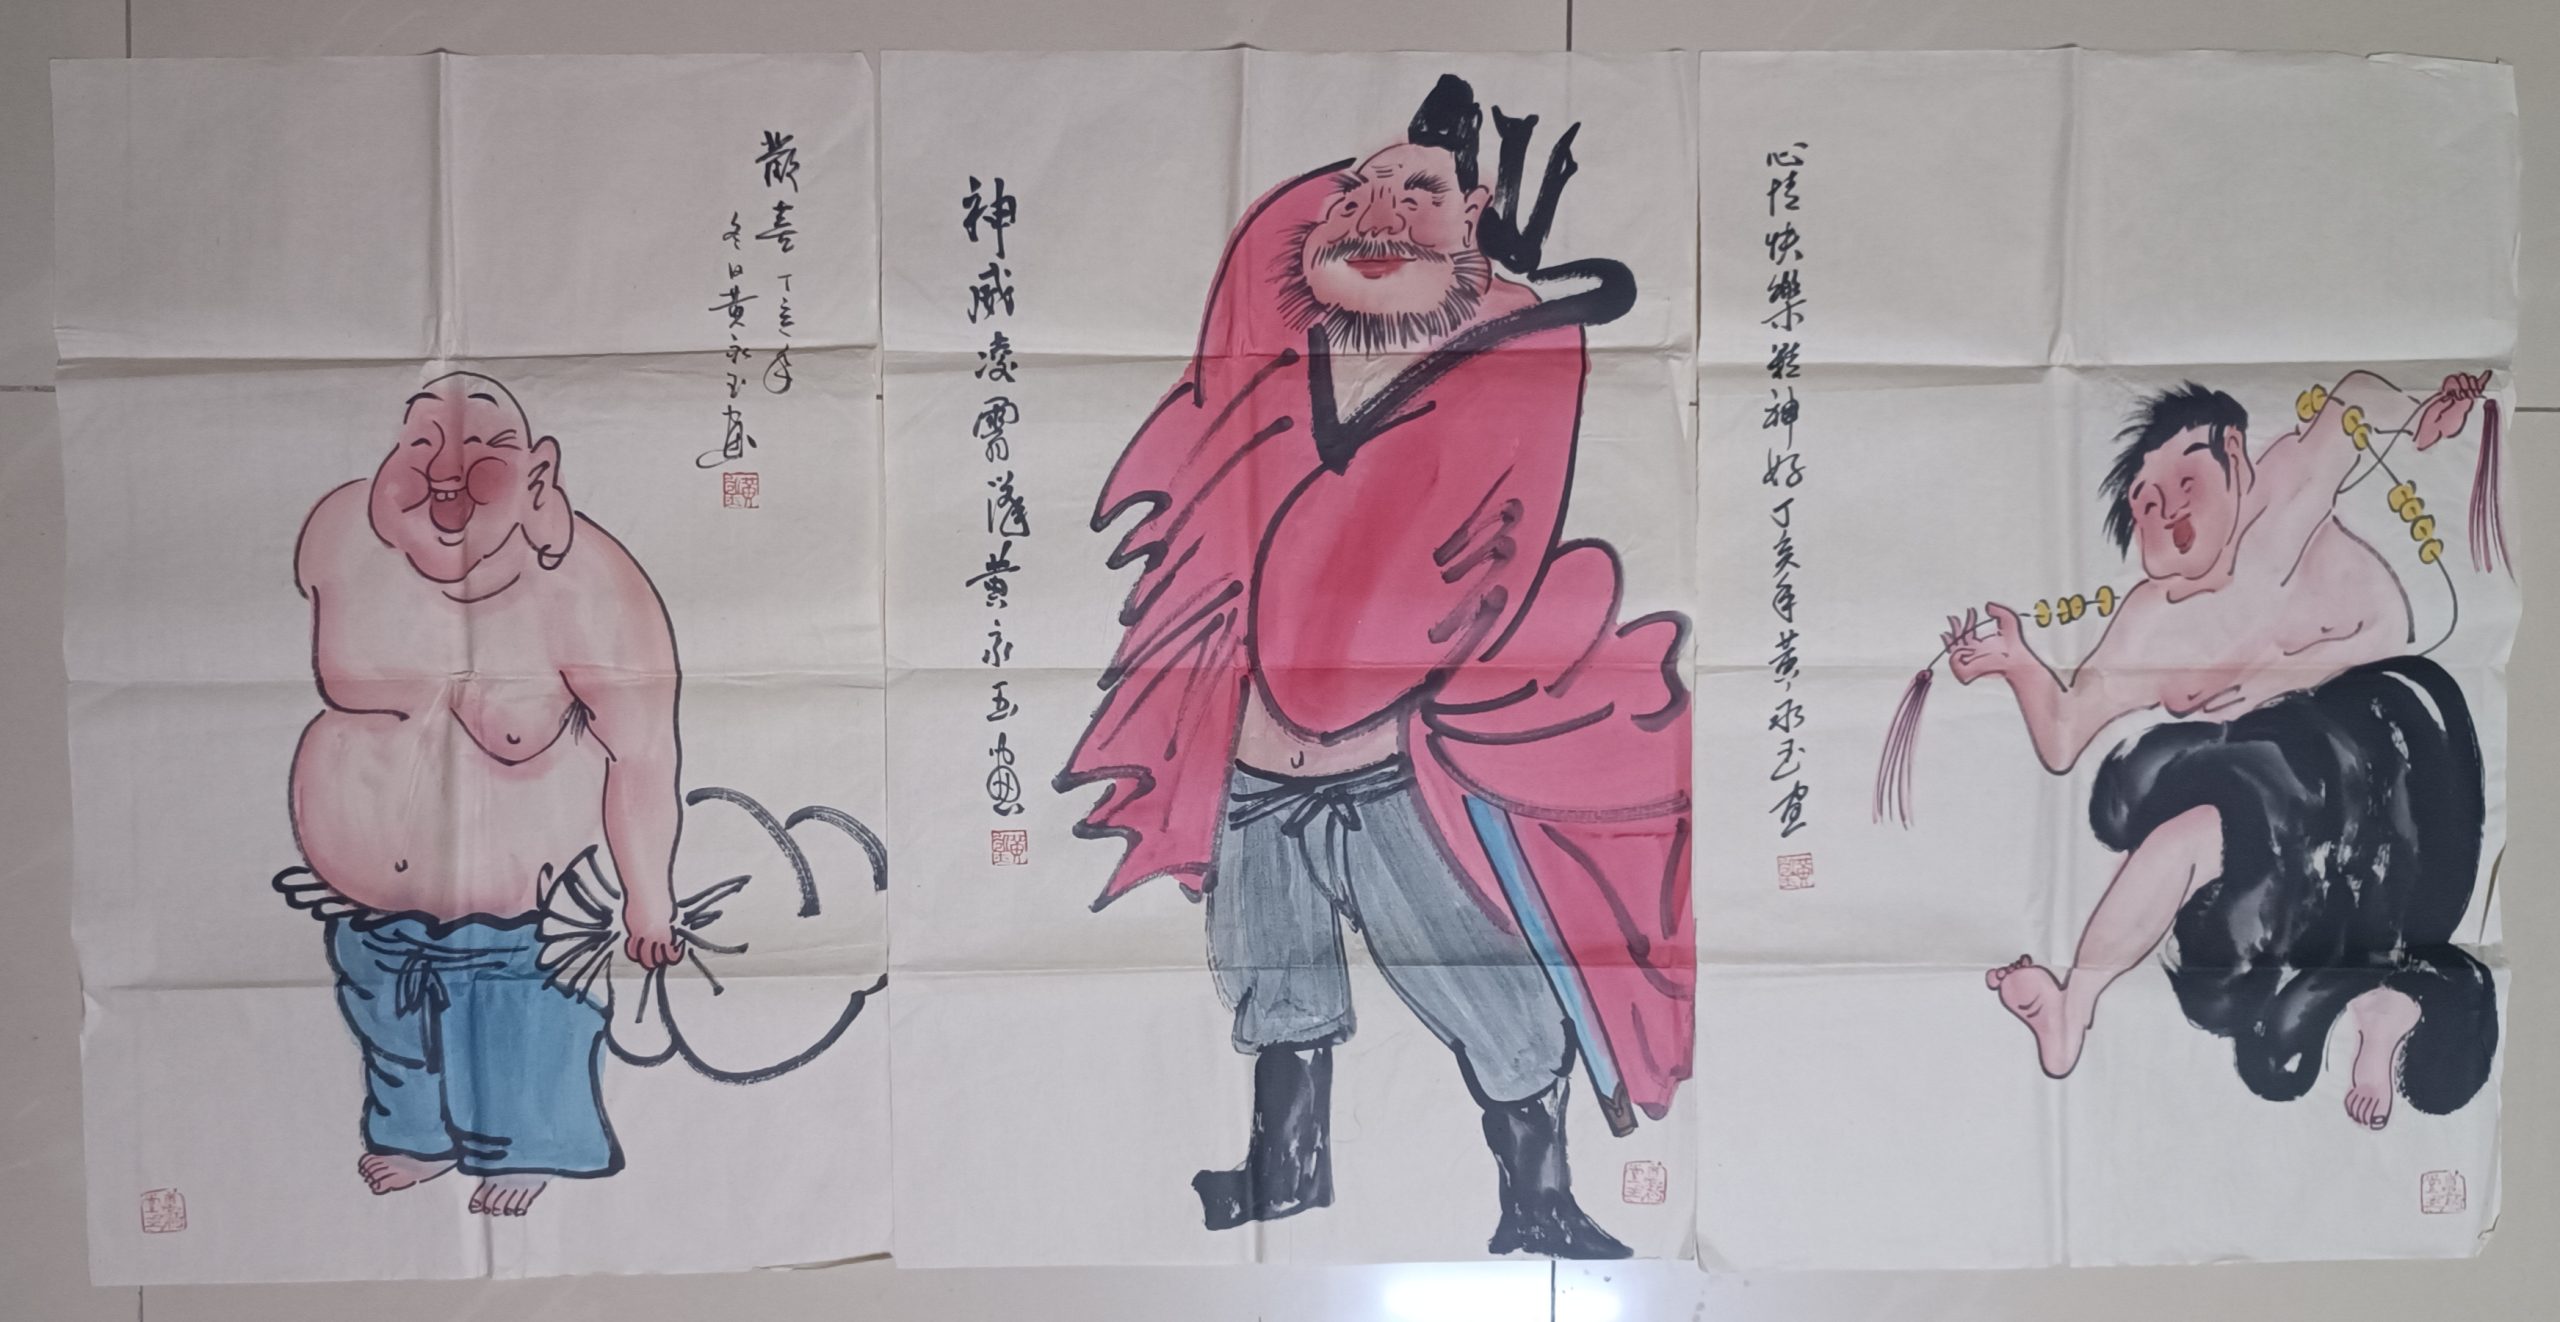 歡喜 丁亥年
冬日黄永玉畫
神威凌霄漢黄永玉画
心情快樂精神好丁亥年黄永玉画